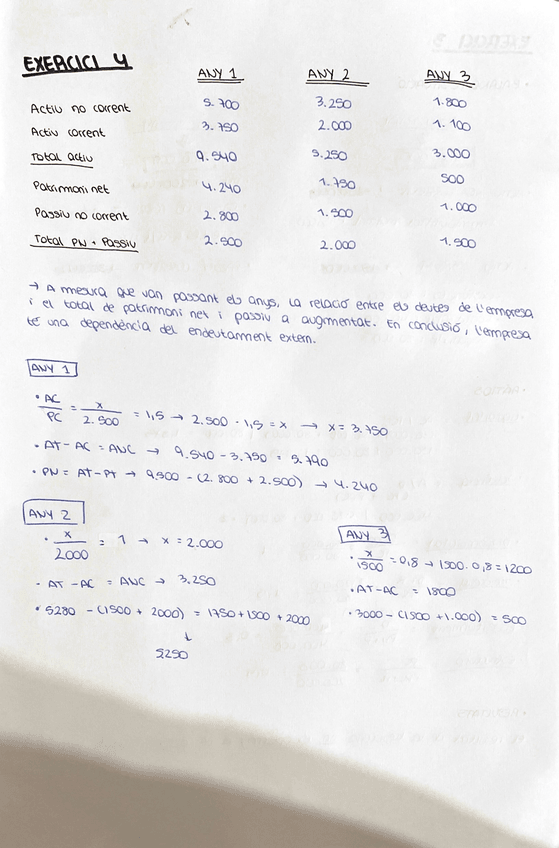 EXERCICI 4
ANY 1 ANY 2 ANY 3
Actiu no corrent 5.700 3.250 1.800
Actiu corrent 3.750 2.000 1.100
Total actiu 9.540 5.250 3.000
Patrimoni net 4.240 1.750 500
Passiu no corrent 2.800 1.500 1.000
Total PN + Passiu 2.500 2.000 1.500
→ A mesura que van passant els anys, la relació entre els deutes de l'empresa
i el total de patrimoni net i passiu a augmentat. En conclusió, l'empresa
té una dependència del endeutament extern.
ANY 1
• AC/PC = x/2.500 = 1,5 → 2.500 · 1,5 = x → x = 3.750
• AT - AC = ANC → 9.540 - 3.750 = 5.790
• PN = AT - PT → 9.500 - (2.800 + 2.500) → 4.240
ANY 2
• x/2000 = 1 → x = 2.000
• AT - AC = ANC → 3.250
• 5280 - (1500 + 2000) = 1750 + 1500 + 2000
↓
5250
ANY 3
• x/1500 = 0,8 → 1500 · 0,8 = 1200
• AT - AC = 1800
• 3000 - (1500 + 1.000) = 500